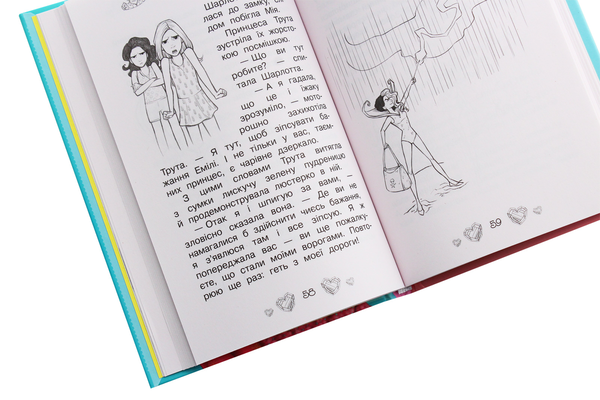 Шарло
лася до замку, сл
дом побігла Мія.
Принцеса Трута
зустріла їх жорсто-
кою посмішкою.
— Що ви тут
робите? — спи-
тала Шарлотта.
— А я гадала,
що це і їжаку
зрозуміло, — мото-
рошно захихотіла
Трута. — Я тут, щоб зіпсувати ба-
жання Емілі. І не тільки у вас, таєм-
них принцес, є чарівне дзеркало.
З цими словами Трута витягла
з сумки лискучу зелену пудреницю
й продемонструвала люстерко в ній.
— Отак я і шпигую за вами, —
зловісно сказала вона. — Де ви не
намагалися б здійснити чиєсь бажання,
я з'являюся там і все зіпсую. Я х
попереджала вас — ви ще пожалку-
єте, що стали моїми ворогами. Повто-
рюю ще раз: геть з моєї дороги!
58
59